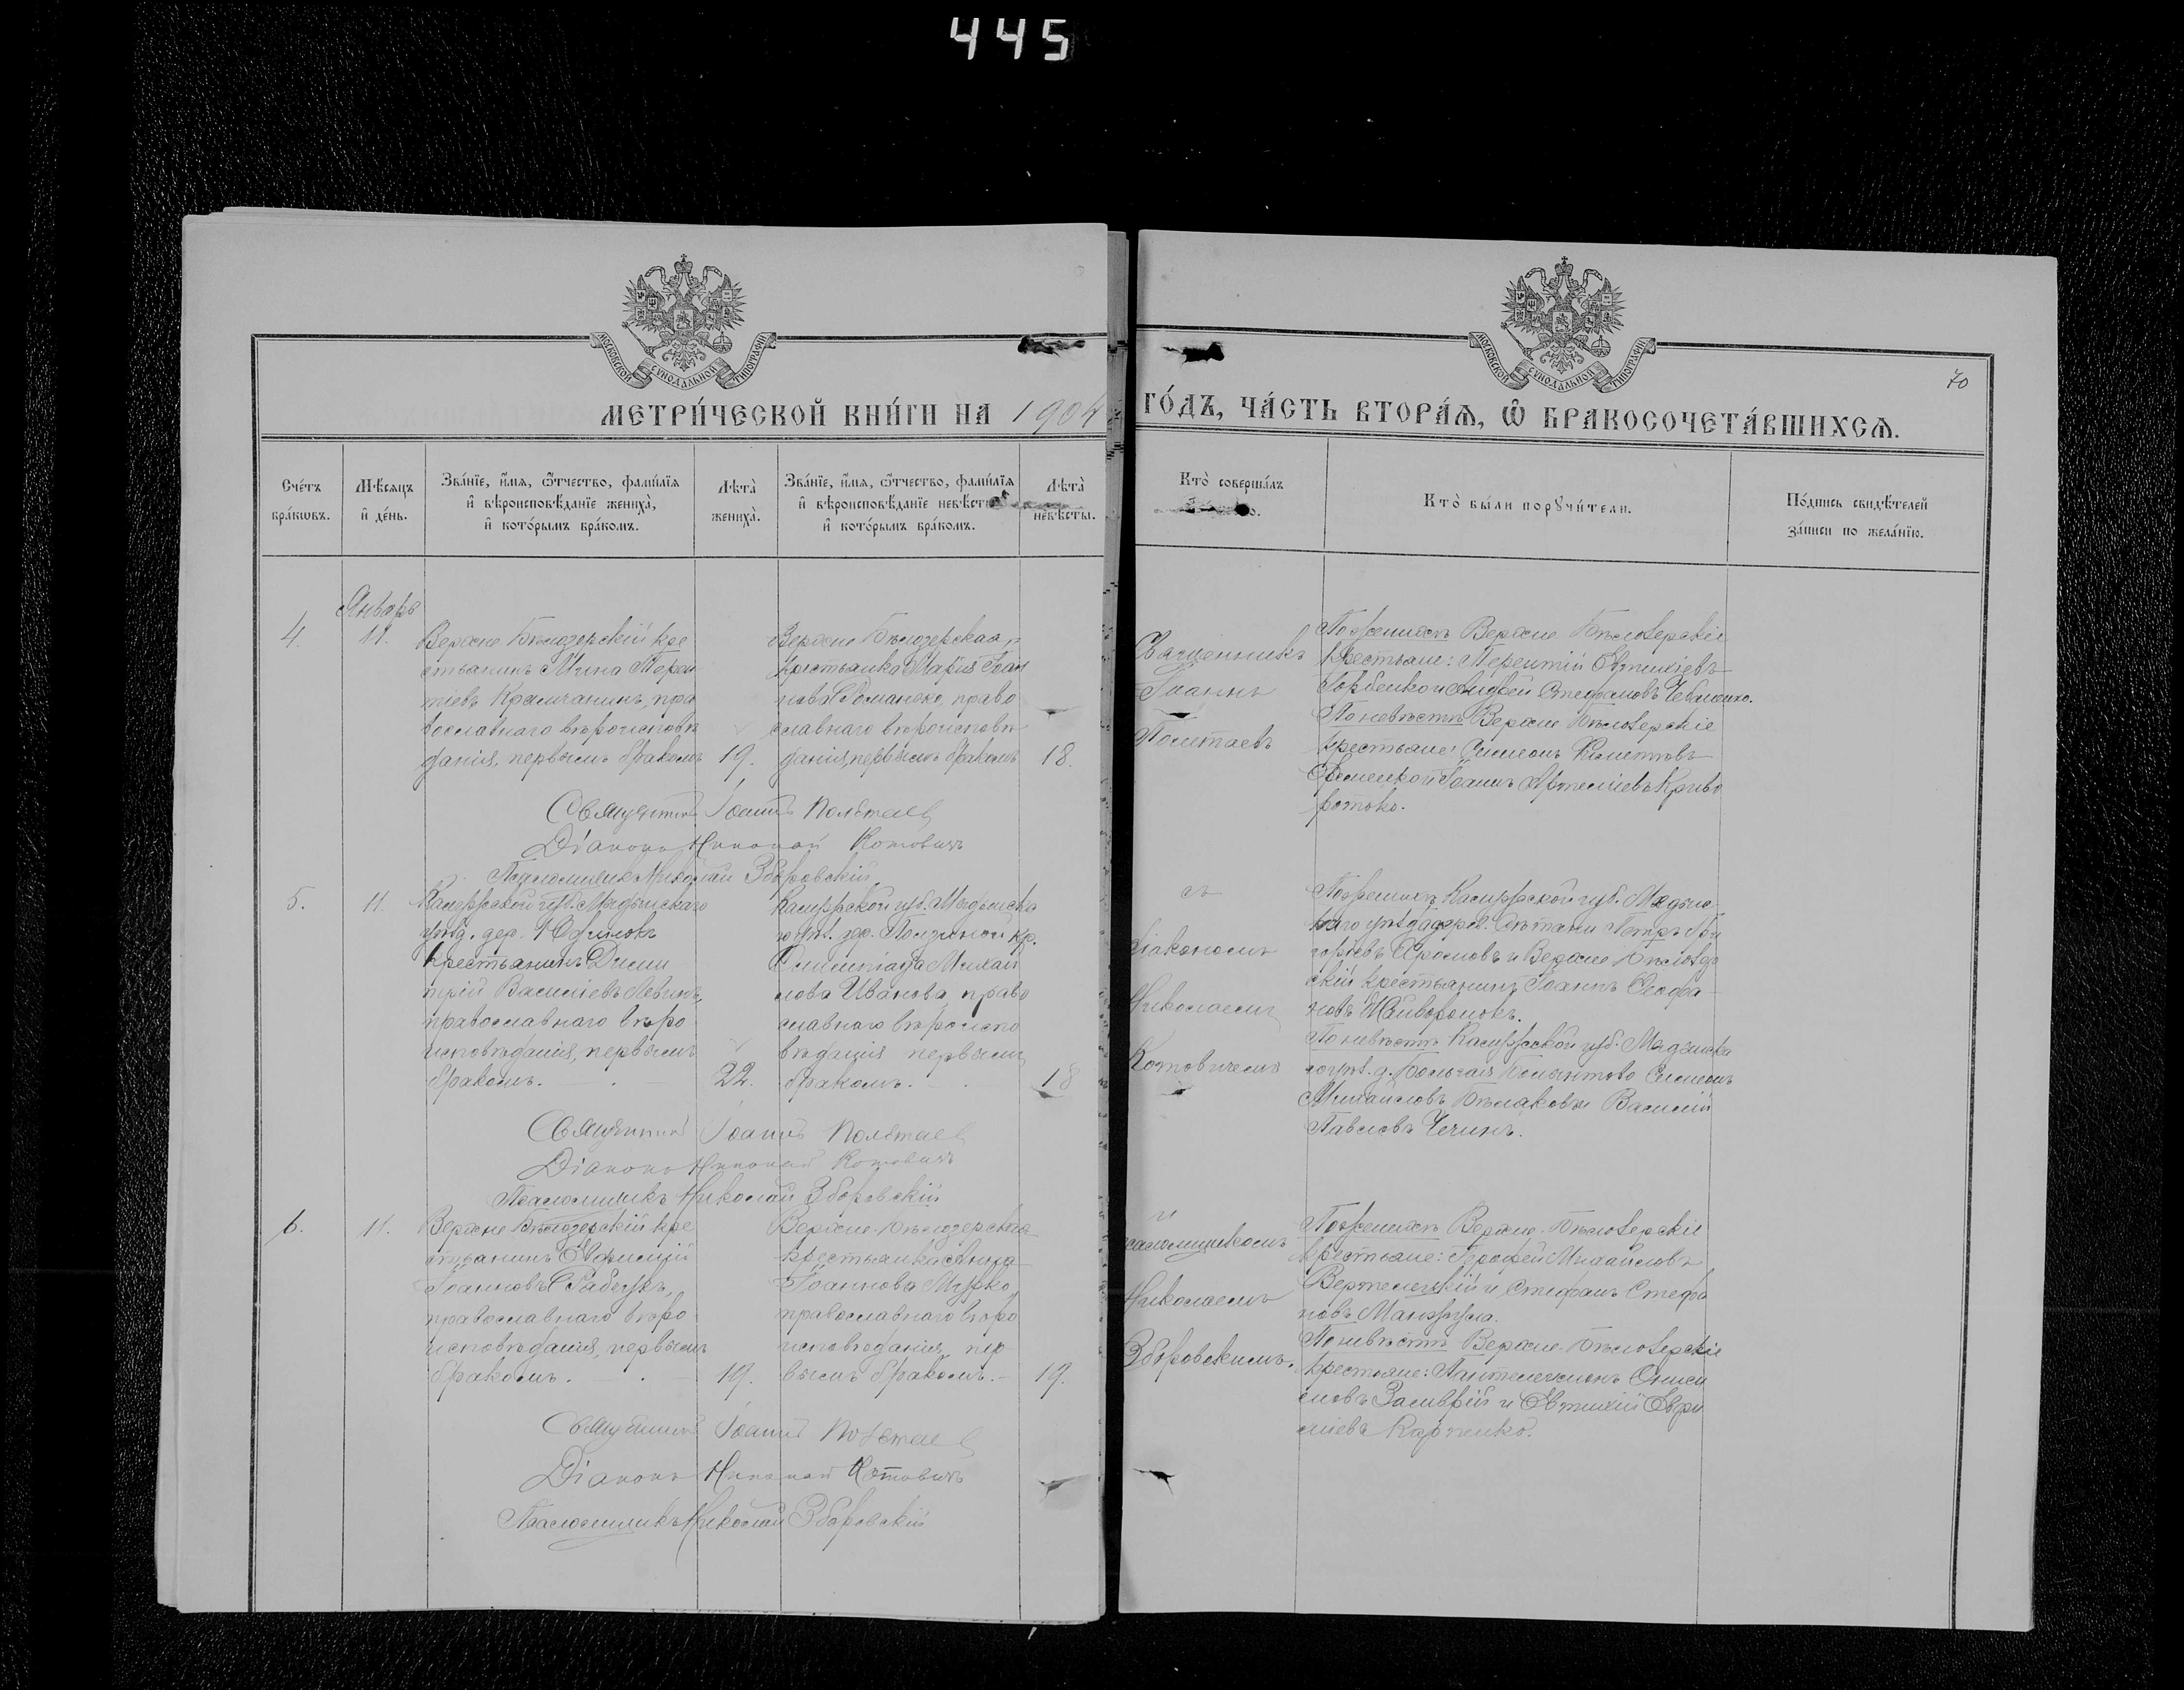 445
МОСКОВСКОЙ СУНОДАЛЬНОЙ ТИПОГРАФІИ
МОСКОВСКОЙ СУНОДАЛЬНОЙ ТИПОГРАФІИ
70
МЕТРИ́ЧЕСКОЙ КНИ́ГИ НА 1904
ГО́ДЪ, ЧА́СТЬ ВТОРА́Ѧ, Ѡ҆ БРАКОСОЧЕТА́ВШИХСѦ.
Сче́тъ
бра́кѡвъ.
Мѣ́сѧцъ
и҆ де́нь.
Зва́нїе, и҆́мѧ, ѻ҆́тчество, фами́лїѧ
и҆ вѣроисповѣ́данїе жениха̀,
и҆ кото́рымъ бра́комъ.
Лѣта̀
жениха̀.
Зва́нїе, и҆́мѧ, ѻ҆́тчество, фами́лїѧ
и҆ вѣроисповѣ́данїе невѣ́сты
и҆ кото́рымъ бра́комъ.
Лѣта̀
невѣ́сты.
Кто̀ соверша́лъ
Кто̀ бы́ли порꙋчи́тели.
По́дпись свидѣ́телей
за́писи по жела́нїю.
Январь
4.
11.
Верхне Бѣлозерскій кре
стьянинъ Мина Терен
тіевъ Крамчанинъ, пра
вославнаго вѣроисповѣ
данія, первымъ бракомъ
19.
Верхне Бѣлозерская
крестьянка Марія Іоан
нова Романеко, право
славнаго вѣроисповѣ
данія, первымъ бракомъ
18.
Священникъ
Іоаннъ
Полѣтаевъ
По женихѣ Верхне Бѣлозерскіе
крестьяне: Терентій Евтихіевъ
Горбенко и Андрей Стефановъ
По невѣстѣ Верхне Бѣлозерскіе
крестьяне: Симеонъ
и Іоаннъ Артеміевъ Криво
ротько.
Священникъ Іоаннъ Полѣтаевъ
Діаконъ Николай Котовичъ
Псаломщикъ Николай Зборовскій
5.
11.
Калужской губ. Мядынскаго
уѣзд. дер.
крестьянинъ Дими
трій Василіевъ Левинъ,
православнаго вѣро
исповѣданія, первымъ
бракомъ.
22.
Калужской губ. Мядынска
го уѣз. дер. кр.
Олимпіада Михай
лова Иванова, право
славнаго вѣроиспо
вѣданія первымъ
бракомъ.
18
съ
діакономъ
Николаемъ
Котовичемъ
По женихѣ Калужской губ. Мядын
скаго уѣзда дерев. Петръ Гри
горьевъ и Верхне Бѣлозер
скій крестьянинъ Іоаннъ Феофа
новъ
По невѣстѣ Калужской губ. Мядынска
го уѣз. д. Большая Симеонъ
Михайловъ Бѣлаковъ и Василій
Павловъ Чечинъ.
Священникъ Іоаннъ Полѣтаевъ
Діаконъ Николай Котовичъ
Псаломщикъ Николай Зборовскій
6.
11.
Верхне Бѣлозерскій кре
стьянинъ Евфимій
Іоанновъ Рабечукъ,
православнаго вѣро
исповѣданія, первымъ
бракомъ.
19.
Верхне-Бѣлозерская
крестьянка Анна
Іоаннова Мурко,
православнаго вѣро
исповѣданія, пер
вымъ бракомъ.
19.
и
псаломщикомъ
Николаемъ
Зборовскимъ.
По женихѣ Верхне-Бѣлозерскіе
крестьяне: Ерофей Михайловъ
Вертелецкій и Стефанъ Стефа
новъ Манжула.
По невѣстѣ Верхне-Бѣлозерскіе
крестьяне: Пантелеимонъ Ониси
мовъ и Евтихій
Карпенко.
Священникъ Іоаннъ Полѣтаевъ
Діаконъ Николай Котовичъ
Псаломщикъ Николай Зборовскій